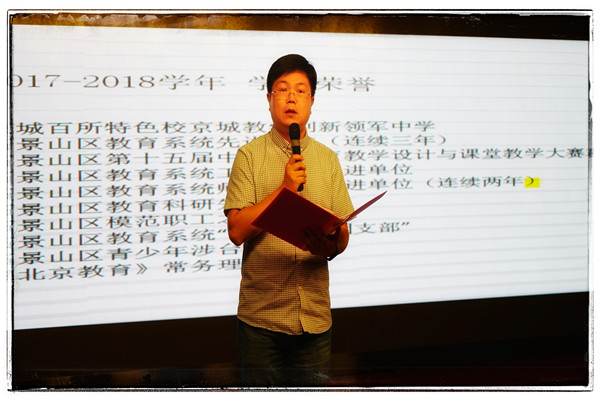 017-2018学年 学 荣誉
城百所特色校京城教 新领军中学
景山区教育系统先 （连续三年）
景山区第十五届中 教学设计与课堂教学大赛
景山区教育系统 进单位
景山区教育系统师 进单位（连续两年）
景山区教育科研
景山区模范职工
景山区教育系统“ 支部”
景山区青少年涉台
北京教育》常务理